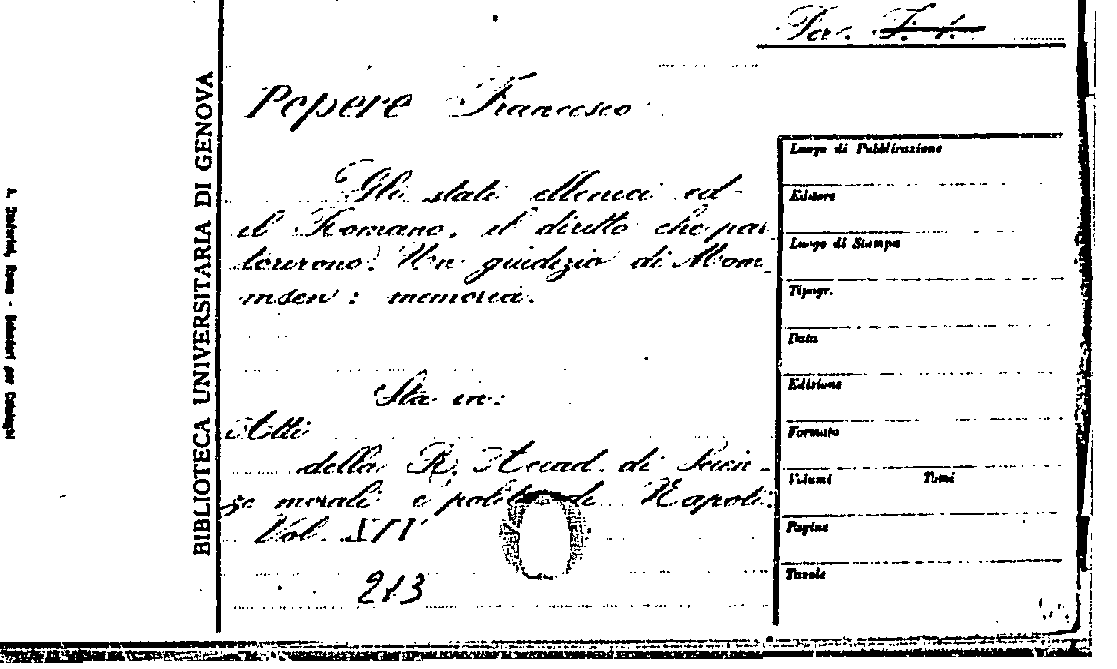 Per.
Pepere Francesco
Gli stati ellenici ed
il Romano, il diritto che par
torirono. Un giudizio di Mom_
msen : memoria.
Sta in:
Atti
della R. Accad. di Scien_
ze morali e polit. di Napoli.
Vol. XIV
213
BIBLIOTECA UNIVERSITARIA DI GENOVA
Luogo di Pubblicazione
Editore
Luogo di Stampa
Tipogr.
Data
Edizione
Formato
Volumi Tomi
Pagine
Tavole
Roma - Schedari per Cataloghi